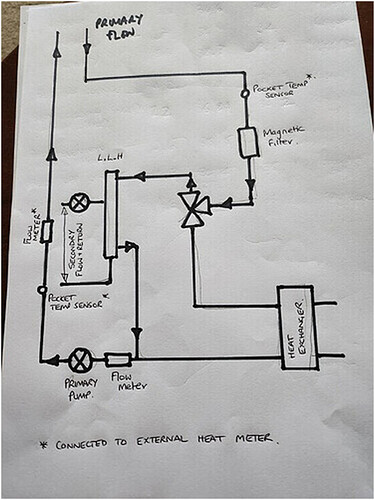 PRIMARY
FLOW
POCKET TEMP*
SENSOR
Magnetic
Filter.
L.L.H
FLOW
METER*
SECONDARY
FLOW & RETURN
POCKET
TEMP SENSOR *
HEAT
EXCHANGER.
PRIMARY
PUMP.
Flow
Meter
* CONNECTED TO EXTERNAL HEAT METER.